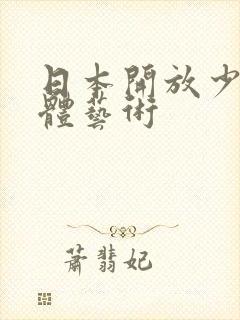 日本開放少
體藝術
蕭翡妃